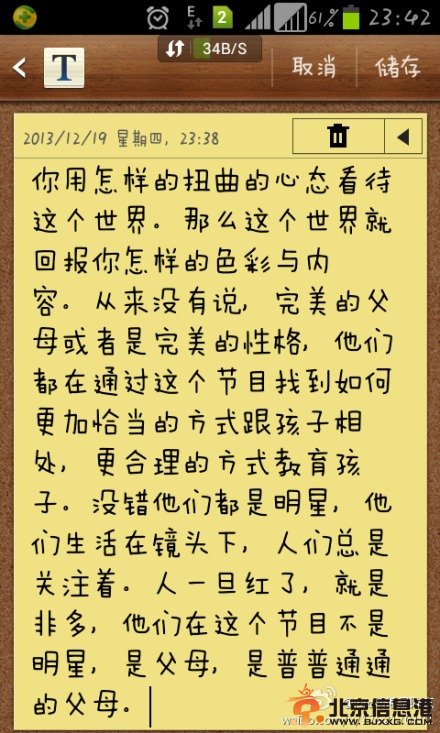 E
2
61%
23:42
34B/S
T
取消
储存
2013/12/19 星期四, 23:38
你用怎样的扭曲的心态看待
这个世界。那么这个世界就
回报你怎样的色彩与内
容。从来没有说，完美的父
母或者是完美的性格，他们
都在通过这个节目找到如何
更加恰当的方式跟孩子相
处，更合理的方式教育孩
子。没错他们都是明星，他
们生活在镜头下，人们总是
关注着。人一旦红了，就是
非多，他们在这个节目不是
明星，是父母，是普普通通
的父母.
北京信息港
www.BJXXG.COM